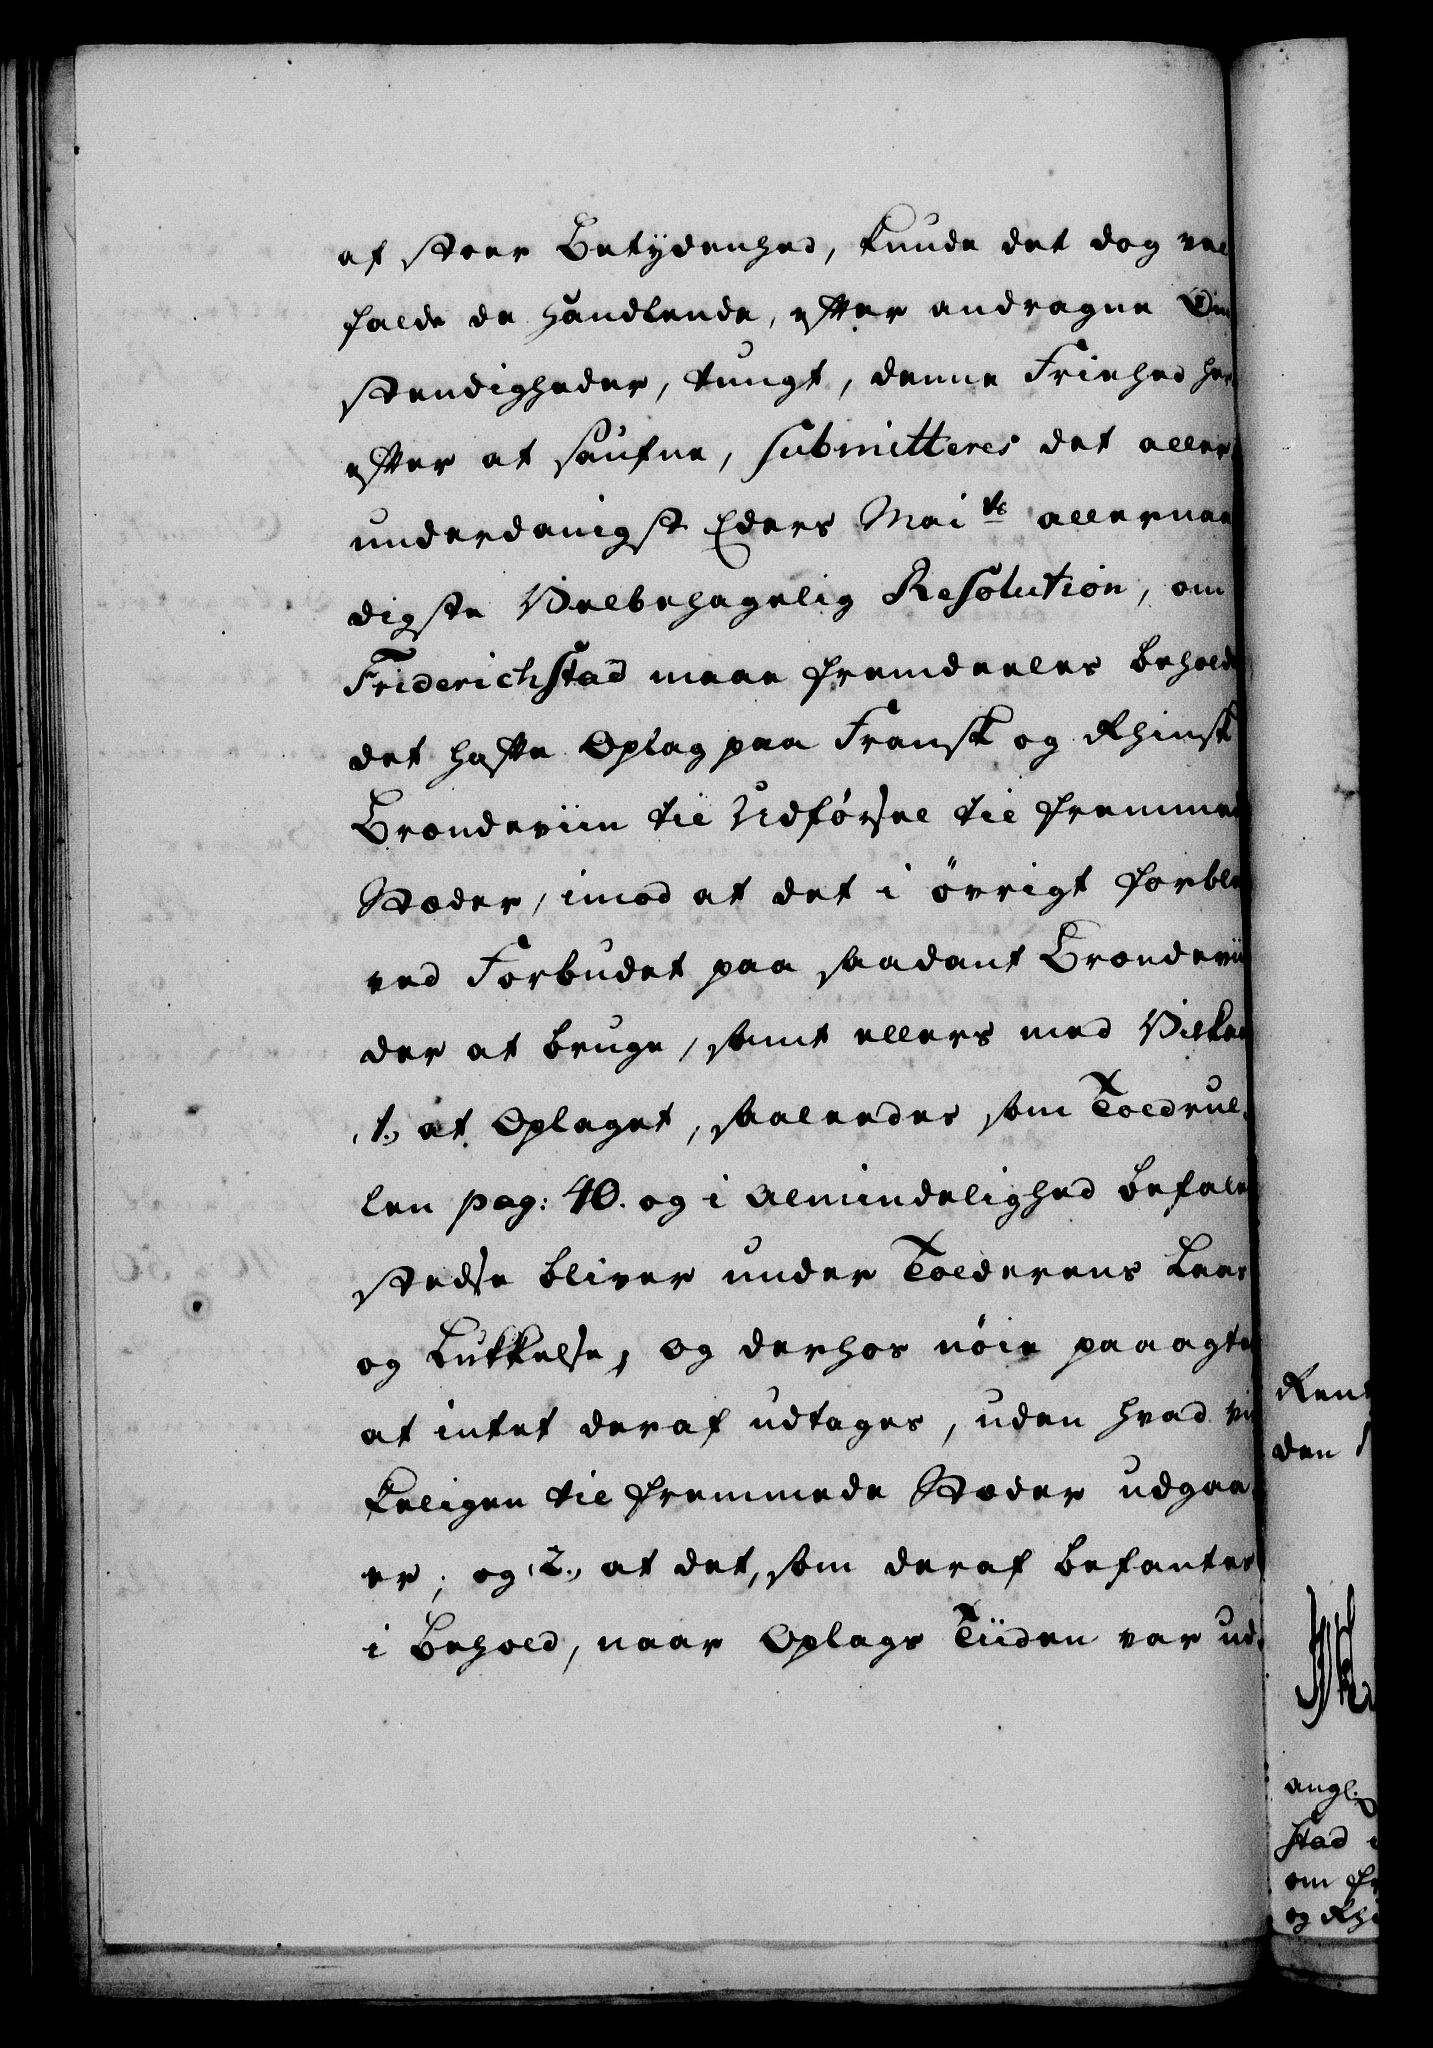 af stoer Betÿdenhed, kunde det dog vel
falde de Handlende, efter andragne Om
stendigheder, tungt, denne Friehed her
efter at saufne, submitteres det aller
underdanigst Eders Mai<sup>ts</sup> allernaa
digste Velbehagelig Resolution, om
Friderichstad maae fremdeeles beholde
det hafte Oplag paa Fransk og Rhinsk
Brændeviin til Udförsel til fremmede
Stæder, imod at det i övrigt forbl
ved Forbudet paa saadant Brændevii
der at bruge, samt ellers med Vilkaa
1., at Oplaget, saaleedes som Toldrul-
len pag: 40. og i Almindelighed befale
stedse bliver under Tolderens Laas
og Lukkelse, og derhos nöie paaagte
at intet deraf udtages, uden hvad vi
keligen til fremmede Stæder udgaa-
er; og 2., at det, som deraf befantes
i Behold, naar Oplags Tiiden var ud-
Rent
den
angl.
stad
om fr
og Rhi